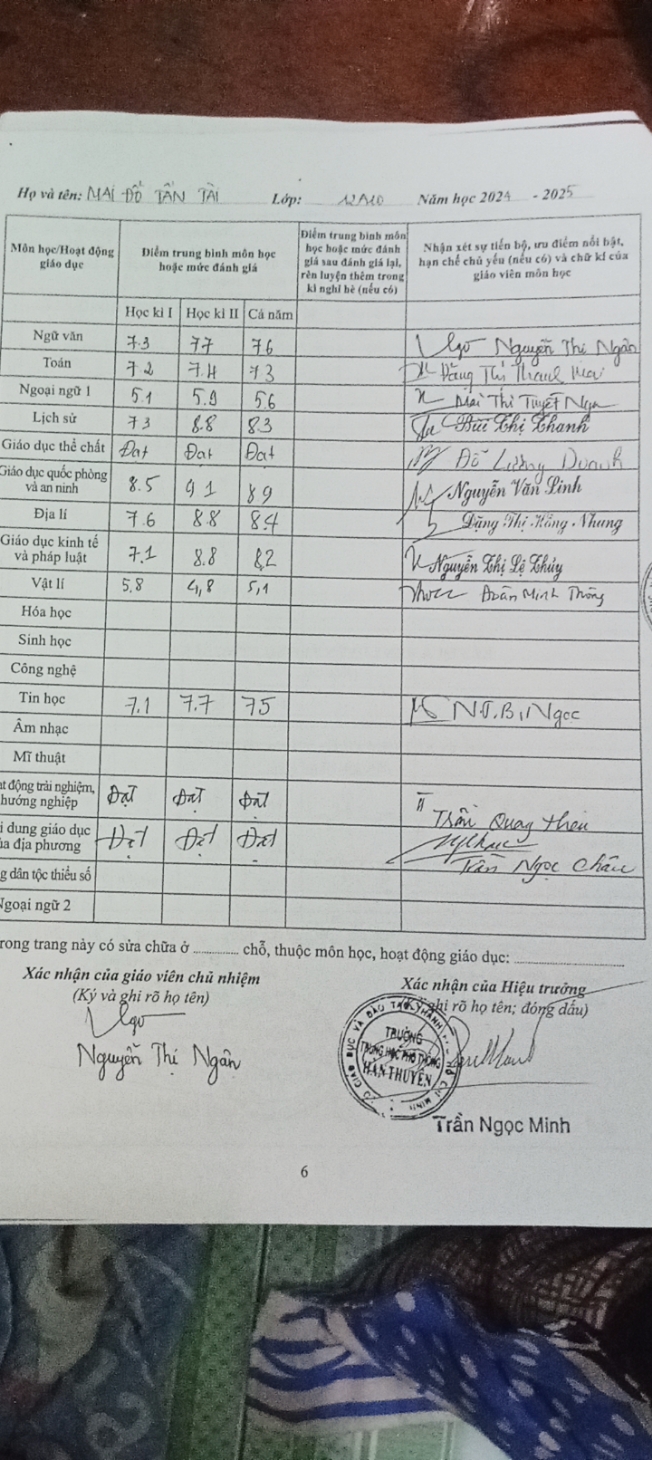 Họ và tên: MAI ĐỖ TẤN TÀI Lớp: 12A10 Năm học 2024 - 2025
Môn học/Hoạt động giáo dục
Điểm trung bình môn học hoặc mức đánh giá
Điểm trung bình môn học hoặc mức đánh giá sau đánh giá lại, rèn luyện thêm trong kì nghỉ hè (nếu có)
Nhận xét sự tiến bộ, ưu điểm nổi bật, hạn chế chủ yếu (nếu có) và chữ kí của giáo viên môn học
Học kì I Học kì II Cả năm
Ngữ văn 7.3 7.7 7.6 Nguyễn Thị Ngân
Toán 7.2 7.4 7.3 Đặng Thị Thanh
Ngoại ngữ 1 5.1 5.9 5.6 Mai Thị Tuyết Nga
Lịch sử 7.3 8.8 8.3 Bùi Thị Thanh
Giáo dục thể chất Đạt Đạt Đạt Đỗ Lương Doanh
Giáo dục quốc phòng và an ninh 8.5 9.1 8.9 Nguyễn Văn Linh
Địa lí 7.6 8.8 8.4 Đặng Thị Hồng Nhung
Giáo dục kinh tế và pháp luật 7.1 8.8 8.2 Nguyễn Thị Lệ Thủy
Vật lí 5.8 4,8 5,1 Đoàn Minh Thông
Hóa học
Sinh học
Công nghệ
Tin học 7.1 7.7 7.5 N.T.B.Ngọc
Âm nhạc
Mĩ thuật
ạt động trải nghiệm, hướng nghiệp Đạt Đạt Đạt Trần Quang
i dung giáo dục ủa địa phương Đạt Đạt Đạt Trần Ngọc Châu
g dân tộc thiểu số
Ngoại ngữ 2
rong trang này có sửa chữa ở chỗ, thuộc môn học, hoạt động giáo dục:
Xác nhận của giáo viên chủ nhiệm
(Ký và ghi rõ họ tên)
Nguyễn Thị Ngân
Xác nhận của Hiệu trưởng
ghi rõ họ tên; đóng dấu)
TRƯỜNG
TRUNG HỌC PHỔ THÔNG
HÀN THUYÊN
Trần Ngọc Minh
6